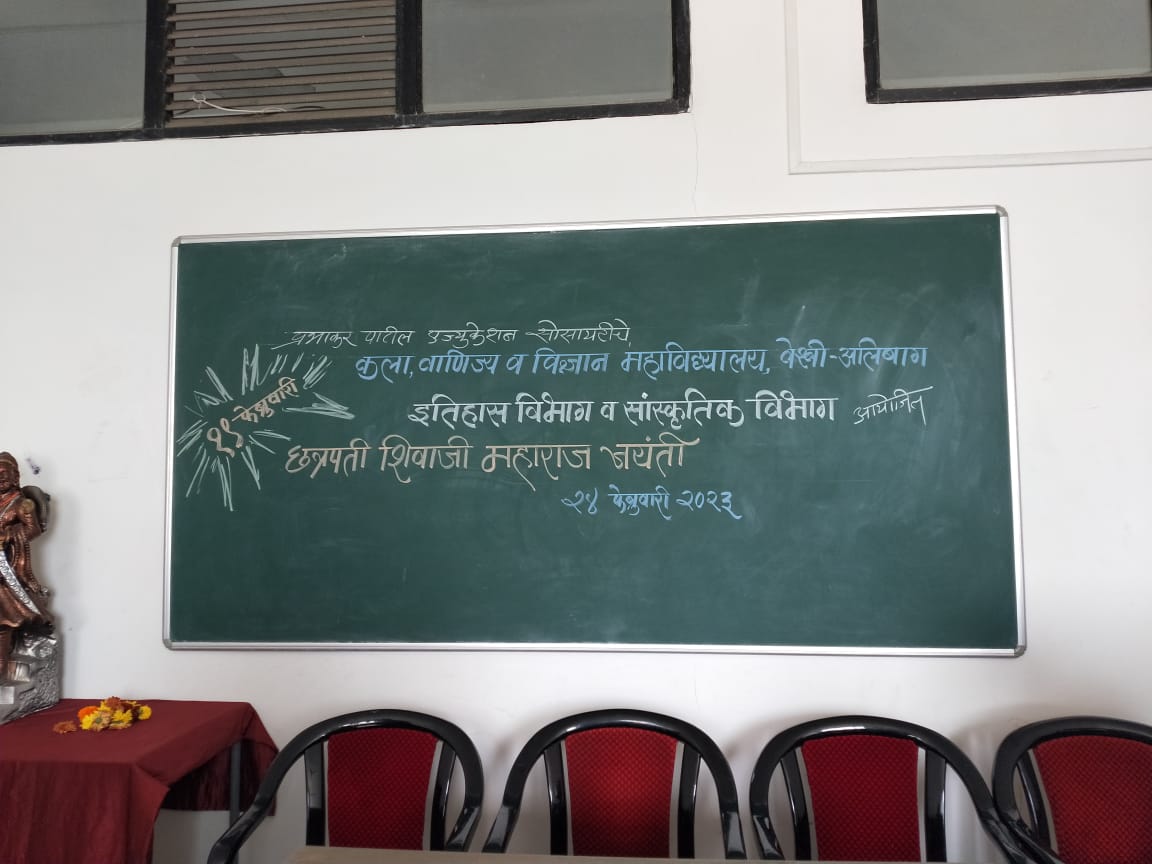 प्रभाकर पाटील एज्युकेशन सोसायटीचे,
कला, वाणिज्य व विज्ञान महाविद्यालय, वेश्वी-अलिबाग
इतिहास विभाग व सांस्कृतिक विभाग आयोजित
१९ फेब्रुवारी
छत्रपती शिवाजी महाराज जयंती
२४ फेब्रुवारी २०२३